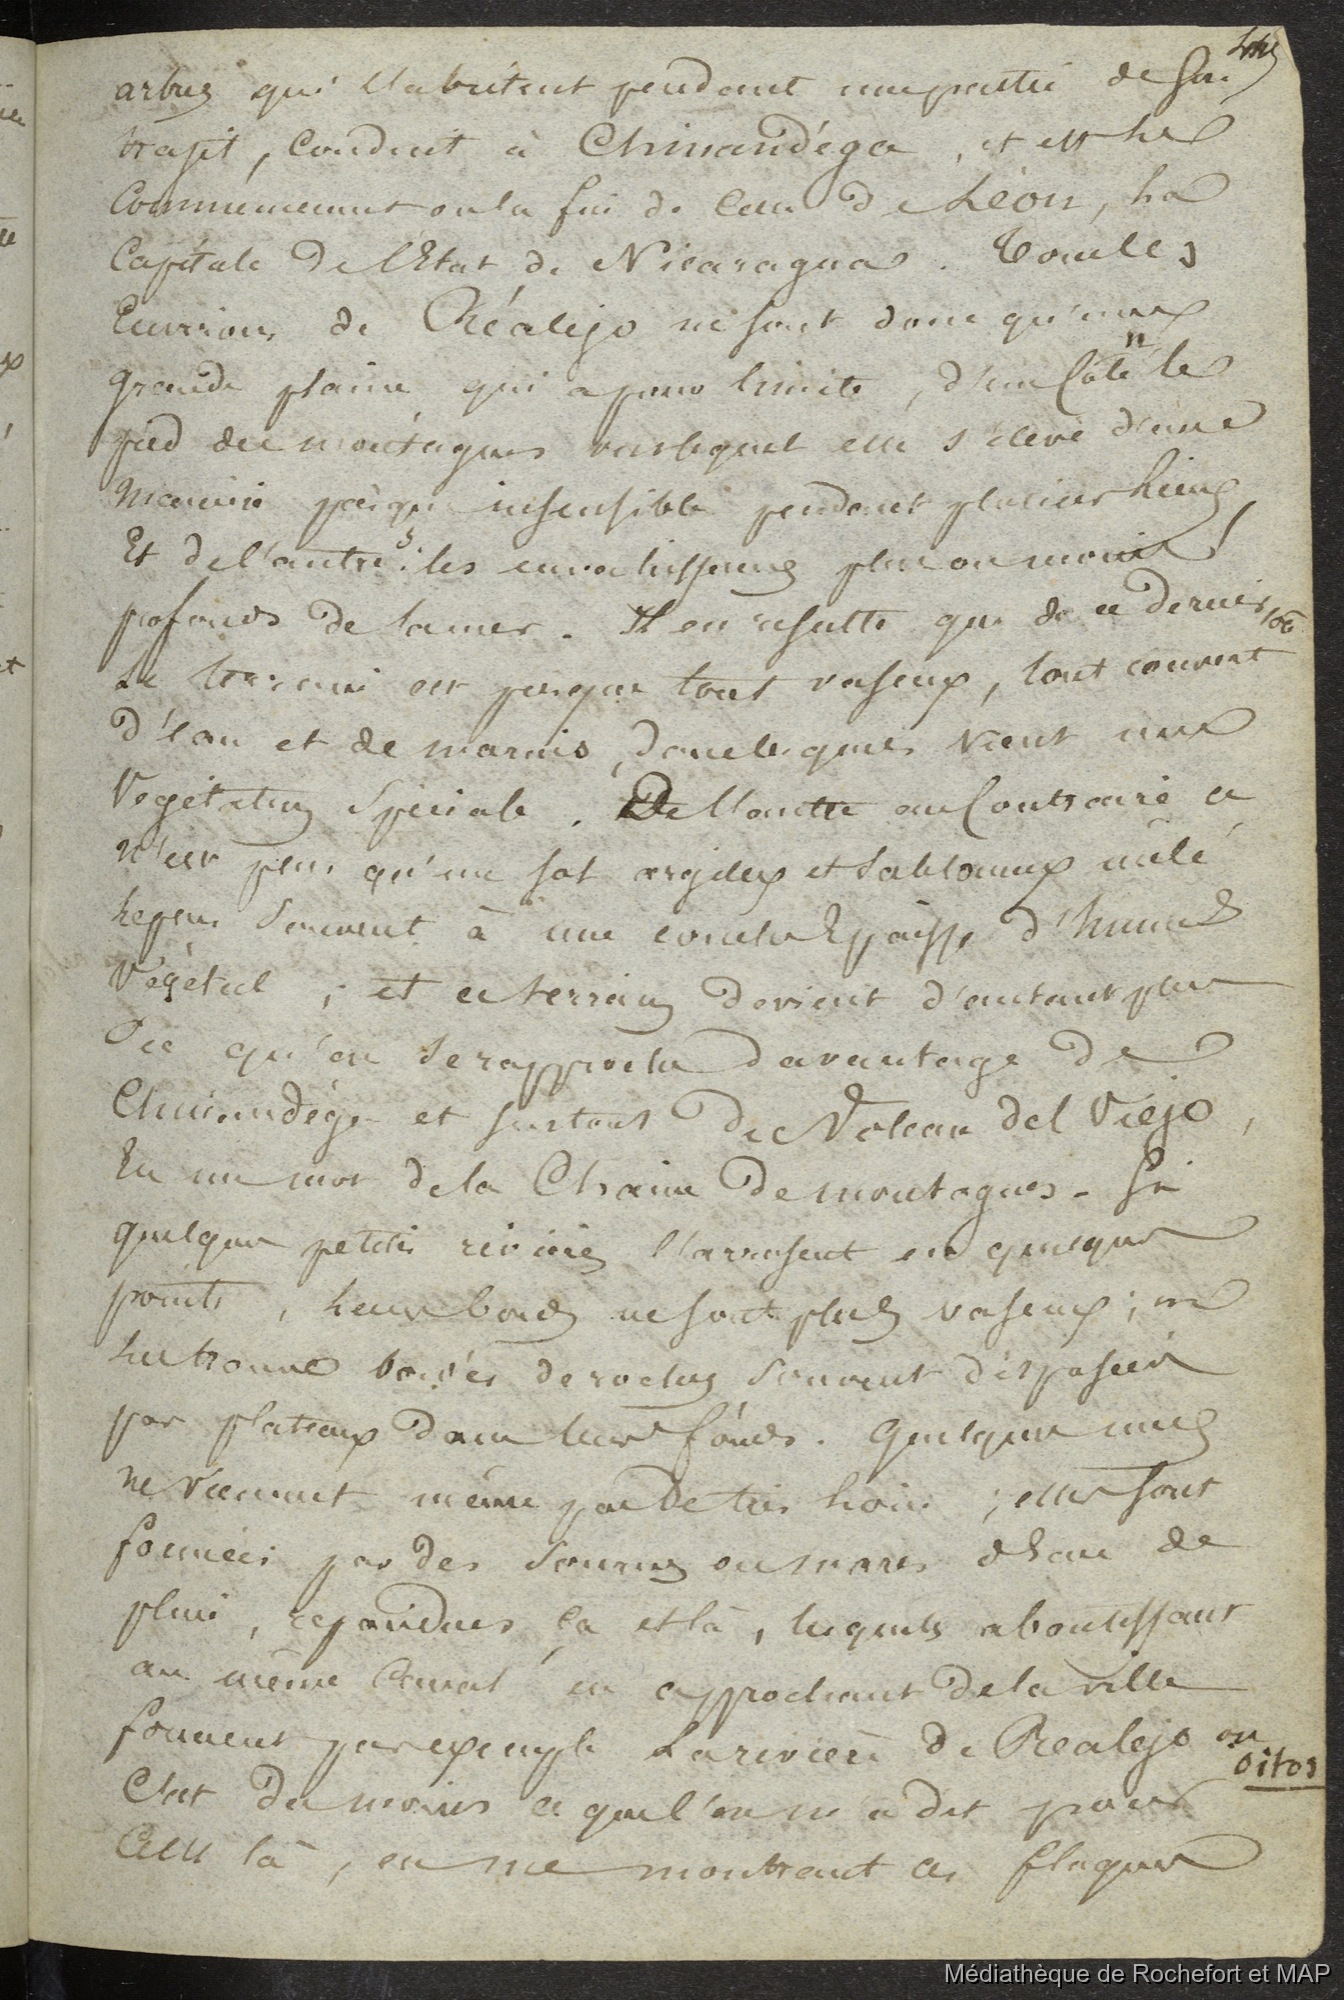 arbres qui l'abritent pendant une partie de son
trajet, conduit à Chinandéga, et est le
commencement ou la fin de celui de Léon, la
Capitale de l'Etat de Nicaragua. Tous les
Environs de Réalejo ne sont donc qu'une
grande plaine qui a pour limite, d'un Côté le
pied des montagnes vers lequel elle s'élève d'une
manière presqu'insensible pendant plusieurs lieues,
Et de l'autre les envahissemens plus ou moins
profonds de la mer. Il en résulte que de ce dernier côté
le terrain est presque tout vaseux, tout couvert
d'eau et de marais, dans lesquels vient une
Végétation Spéciale. De l'autre au Contraire ce
n'est plus qu'un sol argileux et sablonneux mêlé
le plus souvent à une couche épaisse d'humus
Végétal ; et ce terrain devient d'autant plus
sec qu'on se rapproche davantage de
Chinandéga et surtout du Volcan del Viejo,
En un mot de la Chaine de montagnes. Si
quelques petites rivières l'arrosent en quelques
points, leurs bords ne sont plus vaseux ; on
les trouve bordés de roches souvent disposées
par plateaux dans leurs fonds. Quelques unes
ne viennent même pas de très loin ; elles sont
formées par des sources ou mares d'eau de
pluie, repandues ça et là, lesquels aboutissant
au même canal en approchant de la ville
forment par exemple la rivière de Realejo ou
oitos
C'est du moins ce que l'on m'a dit pour
celle là, en me montrant ces flaques
Médiathèque de Rochefort et MAP